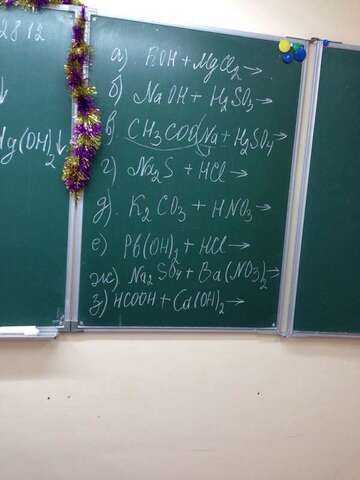 2812
↓
Mg(OH)₂↓
а) KOH + MgCl₂ →
б) NaOH + H₂SO₃ →
в) CH₃COONa + H₂SO₄
г) Na₂S + HCl →
д) K₂CO₃ + HNO₃ →
е) Pb(OH)₂ + HCl →
ж) Na₂SO₄ + Ba(NO₃)₂ →
з) HCOOH + Ca(OH)₂ →